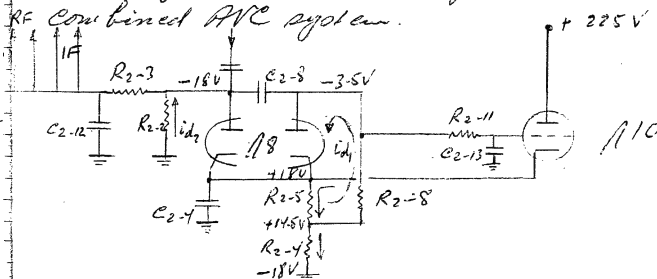 RF Combined AVC system.
IF
+ 225 V
R2-3
-18V
C2-8
-3.5V
R2-11
C2-12
R2-2
id2
Л8
id1
C2-13
Л10
+18V
C2-4
R2-5
R2-8
+14.5V
R2-4
-18V